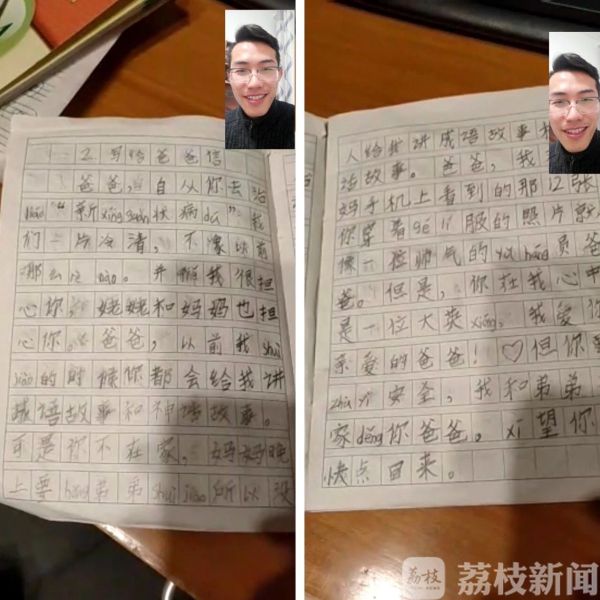 2 写给爸爸信
爸爸,自从你去治
liáo“新xíng guān状病dú”我
们一片冷清,不像以前
那么rè nào。并且我很担
心你,姥姥和妈妈也担
心你。爸爸,以前我shuì
jiào的时候你都会给我讲
成语故事和神话故事。
可是你不在家,妈妈晚
上要hǒng弟弟shuì jiào所以没
人给我讲成语故事
话故事。爸爸,我
妈手机上看到的那12张
你穿着gé lí服的照片就
像一位帅气的yǔ háng员爸
爸。但是,你在我心中
是一位大英xióng,我爱你
亲爱的爸爸!♡但你要
zhù yì安全,我和弟弟
家děng你爸爸。xī望你
快点回来。
荔枝 荔枝新闻